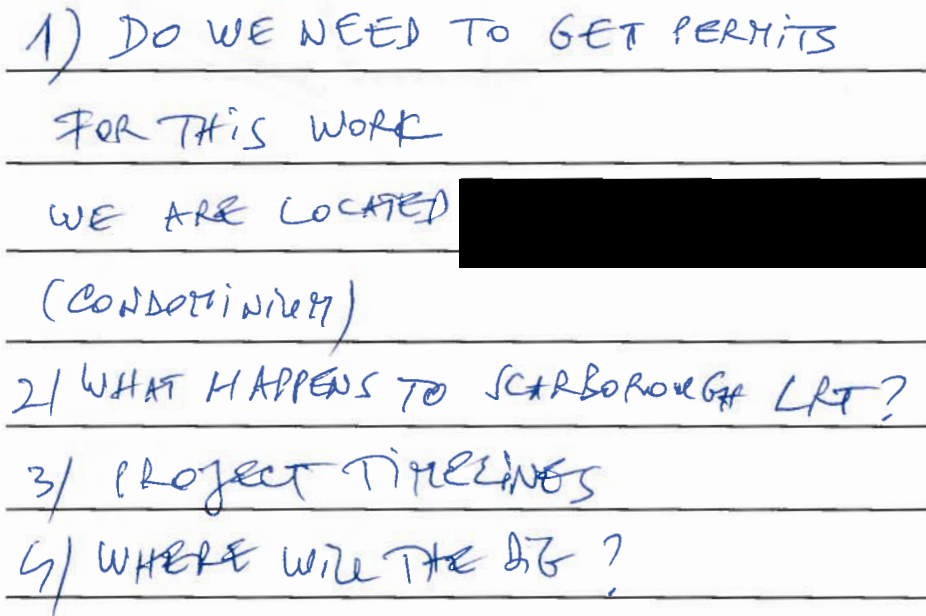 1) DO WE NEED TO GET PERMITS
FOR THIS WORK
WE ARE LOCATED
(CONDOMINIUM)
2/ WHAT HAPPENS TO SCARBOROUGH LRT?
3/ PROJECT TIMELINES
4/ WHERE WILL THE DIG?